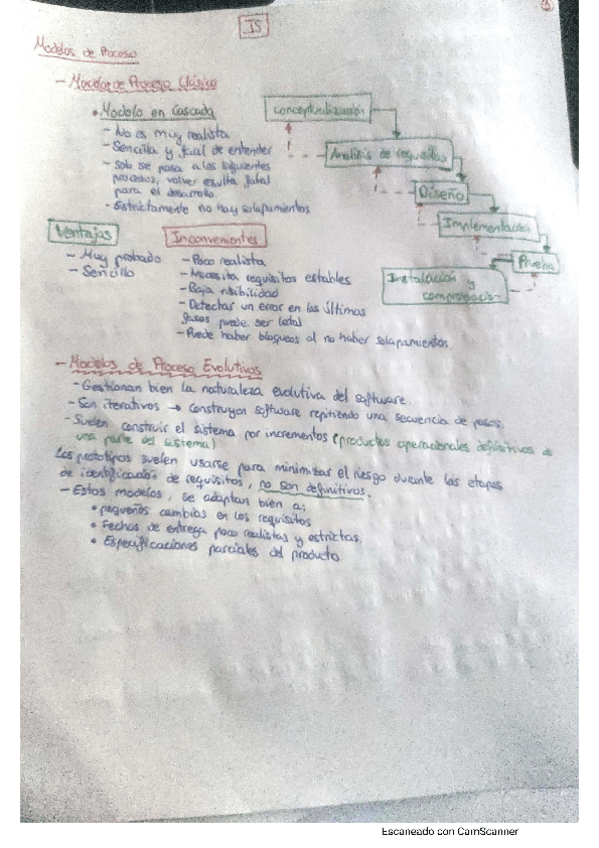 IS
Modelos de Proceso
- Modelos de Proceso Clásico
• Modelo en Cascada
- No es muy realista
- Sencilla y fácil de entender
- solo se pasa a los siguientes
procesos, volver resulta fatal
para el desarrollo.
- Estrictamente no hay solapamientos
Conceptualización
Análisis de requisitos
Diseño
Implementación
Prueba
Instalación y
comprobación
Ventajas
- Muy probado
- Sencillo
Inconvenientes
- Poco realista
- Necesita requisitos estables
- Baja visibilidad
- Detectar un error en las últimas
fases puede ser letal
- Puede haber bloqueos al no haber solapamientos.
- Modelos de Proceso Evolutivos
- Gestionan bien la naturaleza evolutiva del software.
- Son iterativos → construyen software repitiendo una secuencia de pasos.
- Suelen construir el sistema por incrementos (productos operacionales definitivos de
una parte del sistema)
Los prototipos suelen usarse para minimizar el riesgo durante las etapas
de identificación de requisitos, no son definitivos.
- Estos modelos, se adaptan bien a:
• pequeños cambios en los requisitos
• Fechas de entrega poco realistas y estrictas.
• Especificaciones parciales del producto
Escaneado con CamScanner